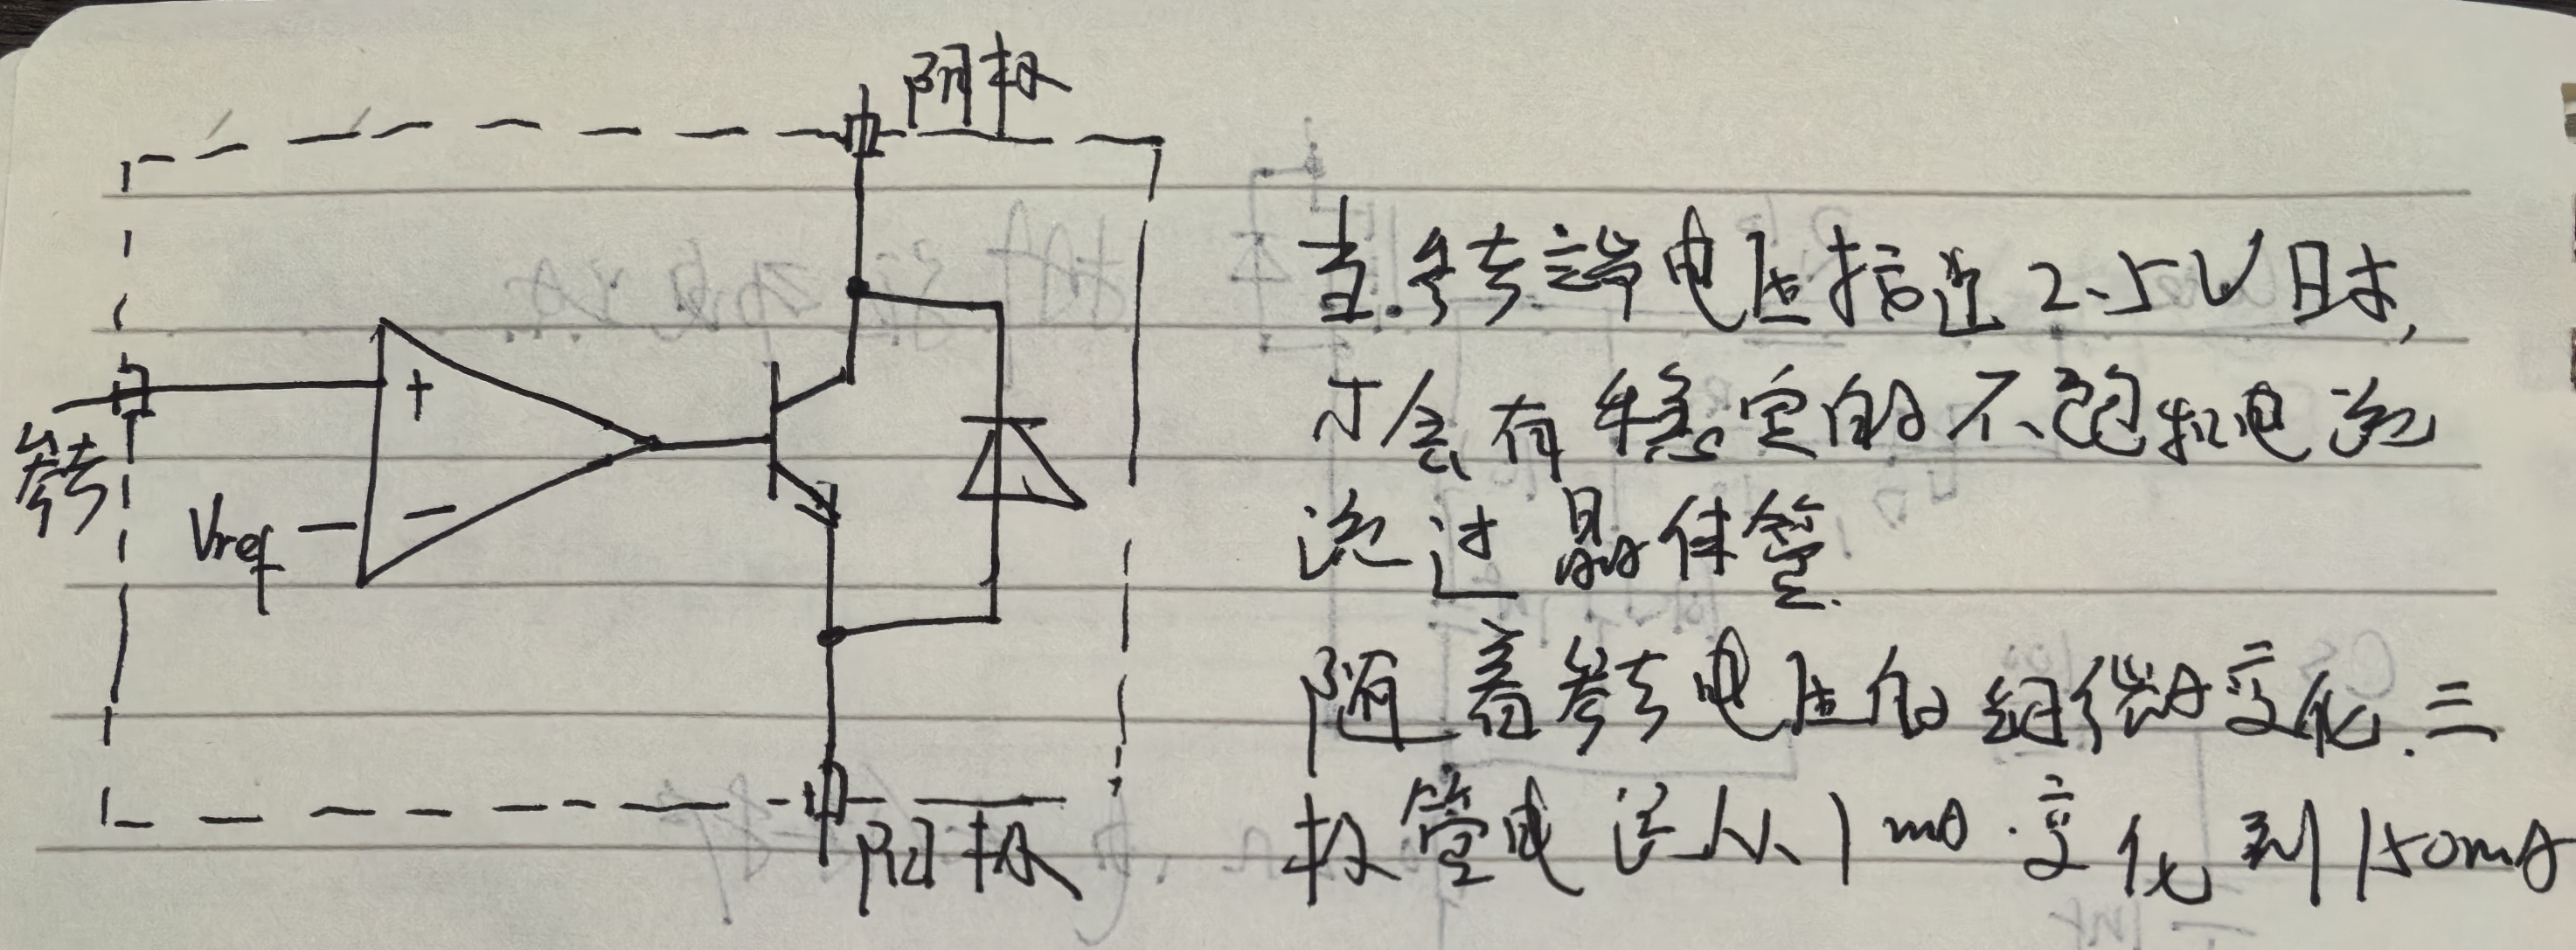 阴极
参考
+
Vref
-
阳极
当.参考端电压接近2.5V时,
才会有稳定的不饱和电流
流过晶体管.
随着参考电压的细微变化.三
极管电流从1mA.变化到150mA